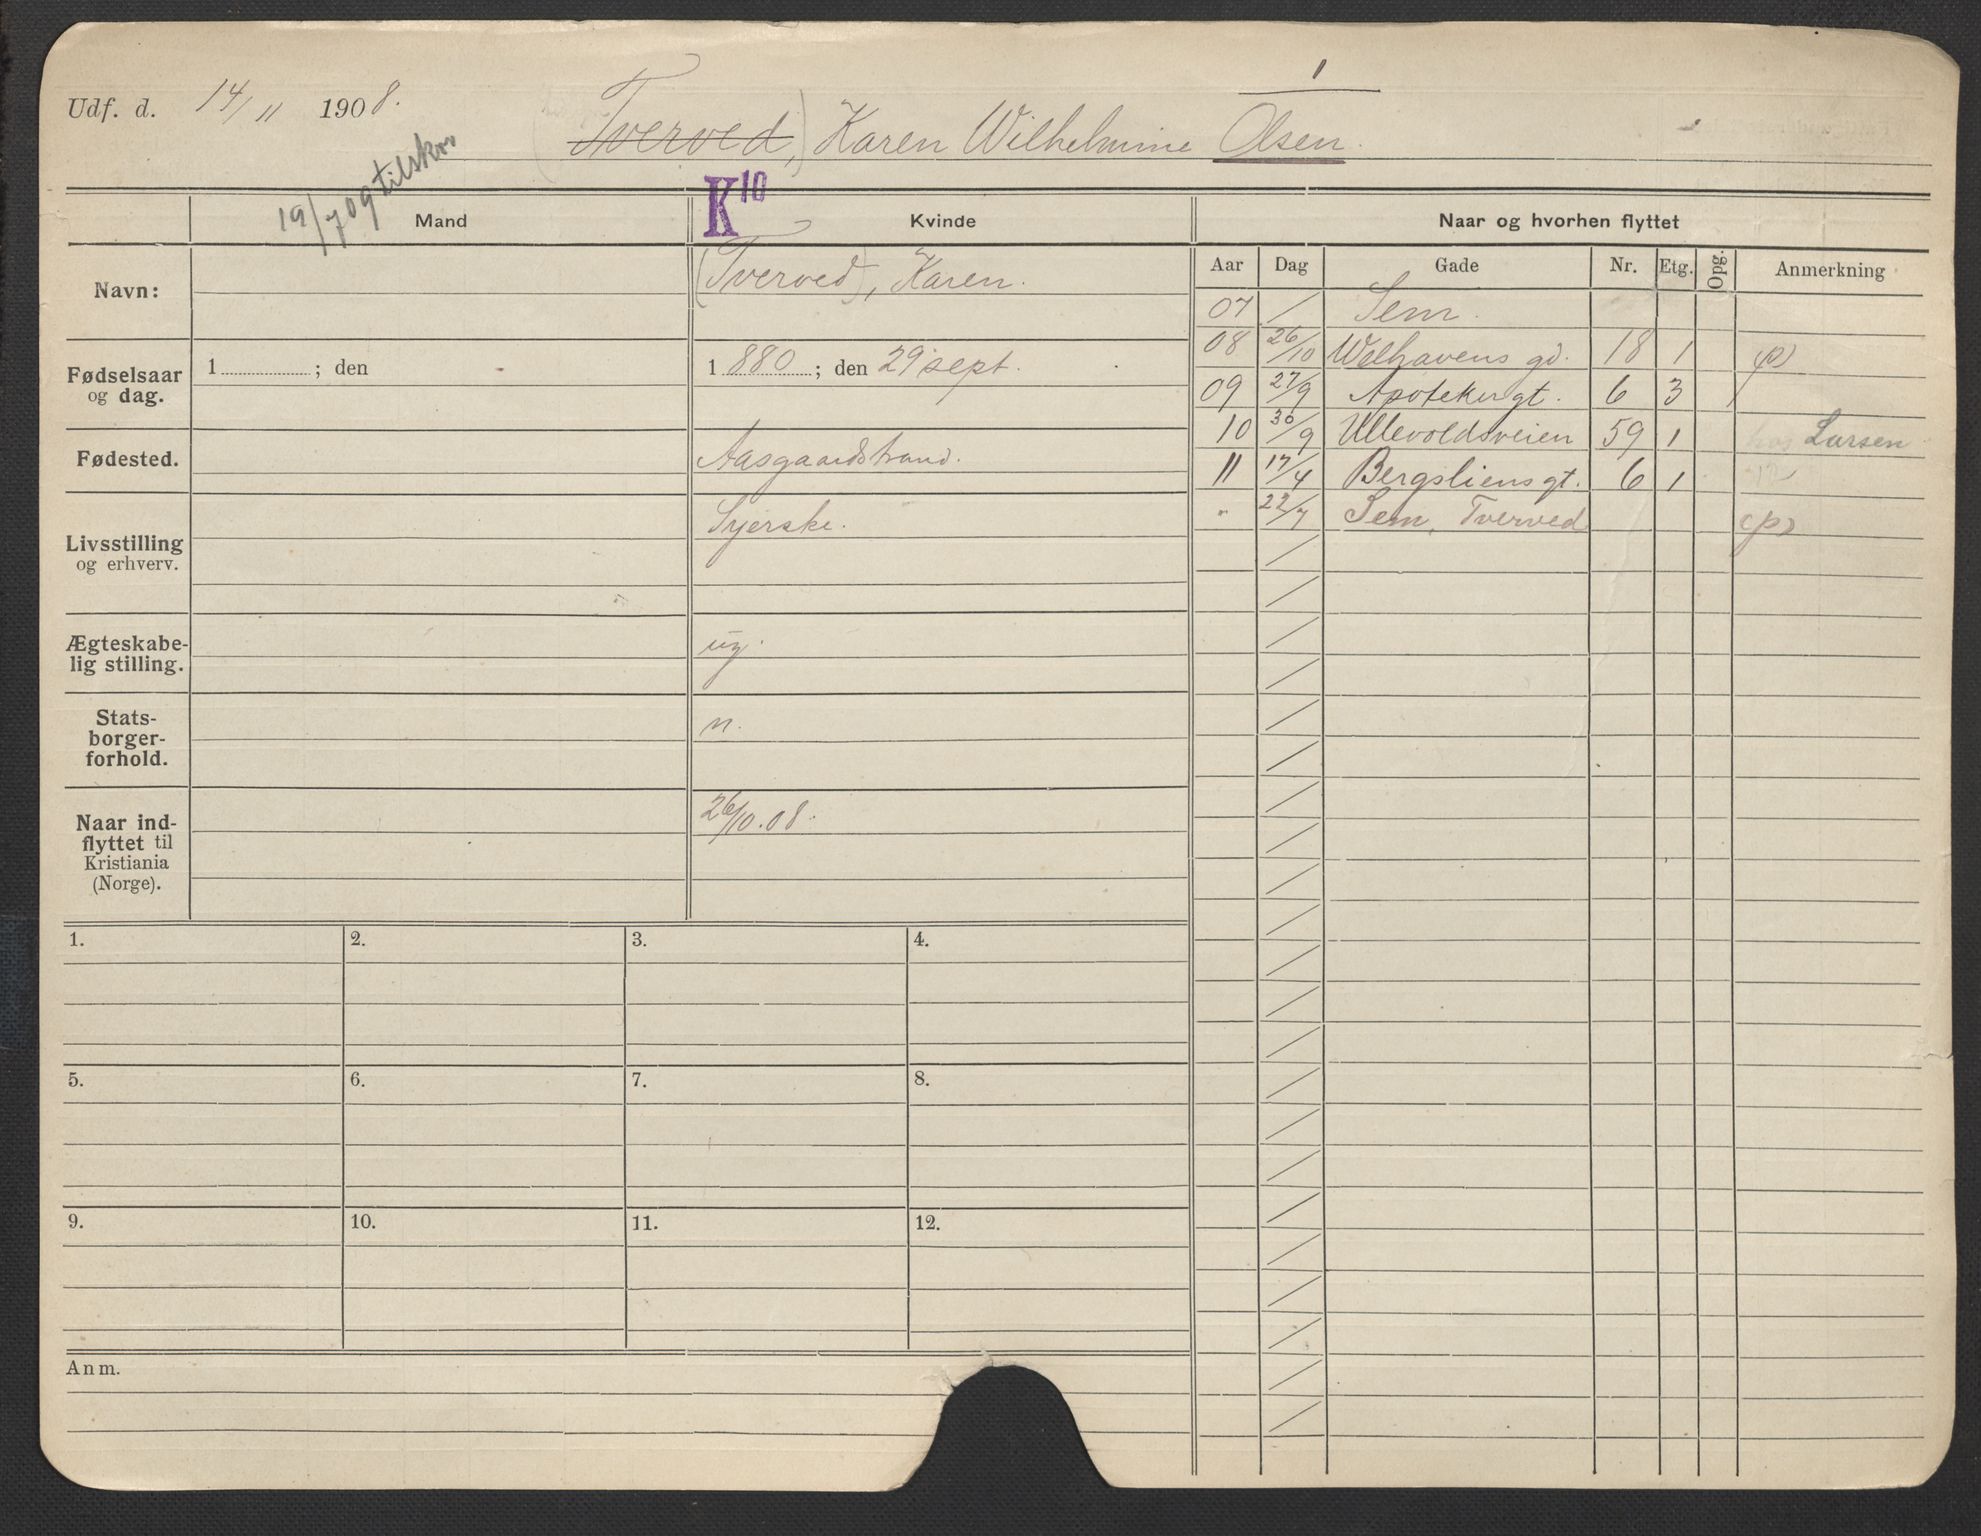 1
Udf. d. 14/11 1908. (Tverved,) Karen Wilhelmine Olsen.
19/7 09 tilskr.
K10
Mand Kvinde Naar og hvorhen flyttet
Aar Dag Gade Nr. Etg. Opg. Anmerkning
Navn: (Tverved), Karen.
Fødselsaar og dag. 1 ; den 1 880 ; den 29 sept.
Fødested. Aasgaardstrand.
Livsstilling og erhverv. Syerske.
Ægteskabelig stilling. ug.
Statsborgerforhold. n.
Naar indflyttet til Kristiania (Norge). 26/10.08.
07 / Sem.
08 26/10 Welhavens gd. 18 1 (p)
09 27/9 Apotekergt. 6 3
10 30/9 Ullevoldsveien 59 1 hos Larsen
11 17/4 Bergsliensgt. 6 1
" 22/7 Sem, Tverved (p)
1. 2. 3. 4.
5. 6. 7. 8.
9. 10. 11. 12.
Anm.